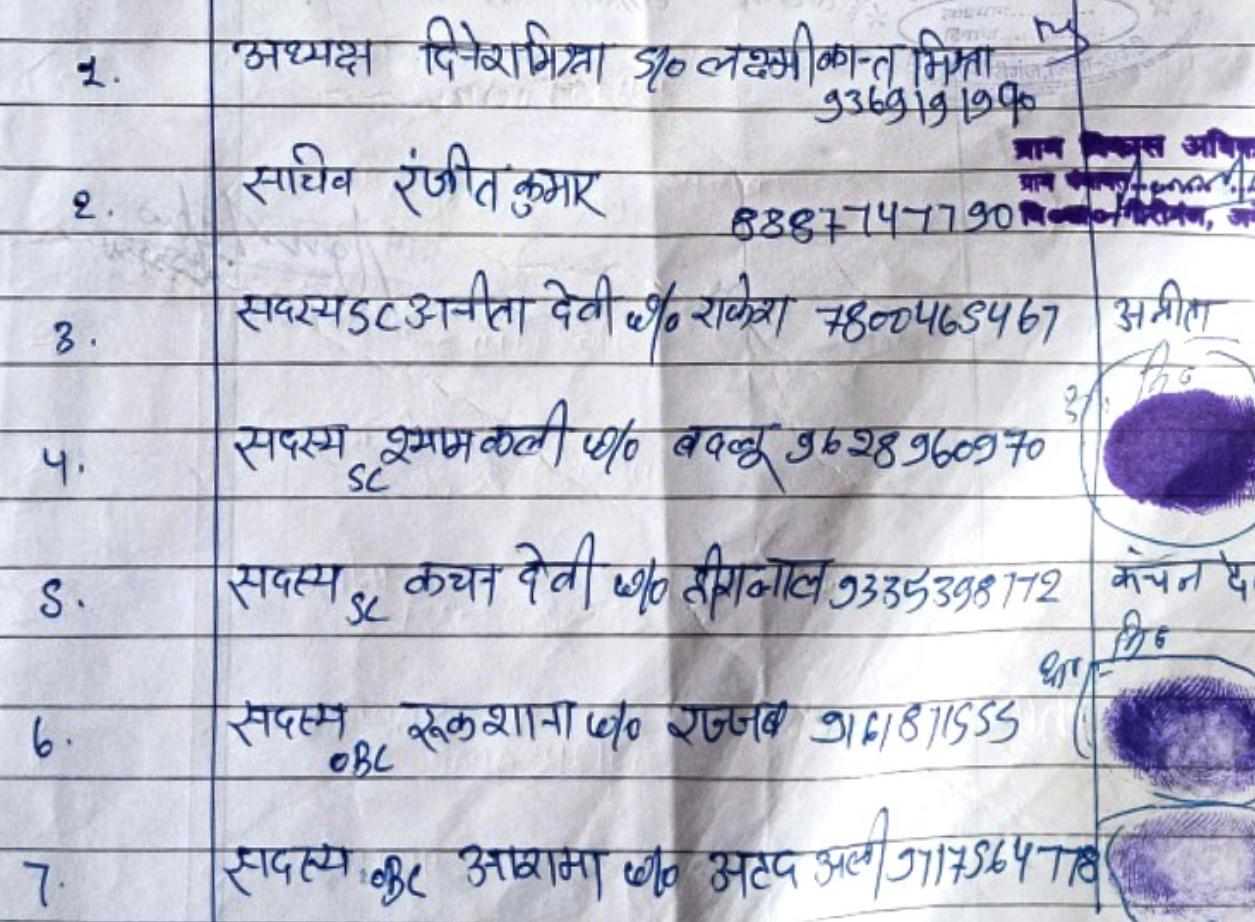 1. अध्यक्ष दिनेश मिश्रा S/o लक्ष्मीकान्त मिश्रा
9369191990
ग्राम विकास अधि
2. सचिव रंजीत कुमार 8887747790
ग्राम
3. सदस्य SC अनीता देवी W/o राकेश 7800465467 अनीता
नि०
4. सदस्य SC श्यामकली W/o बबलू 9628960970
5. सदस्य SC कंचन देवी W/o हीरालाल 9335398772 कंचन दे
नि०
6. सदस्य OBC रूकशाना W/o रज्जब 9161871555
7. सदस्य OBC W/o अली 9717564778